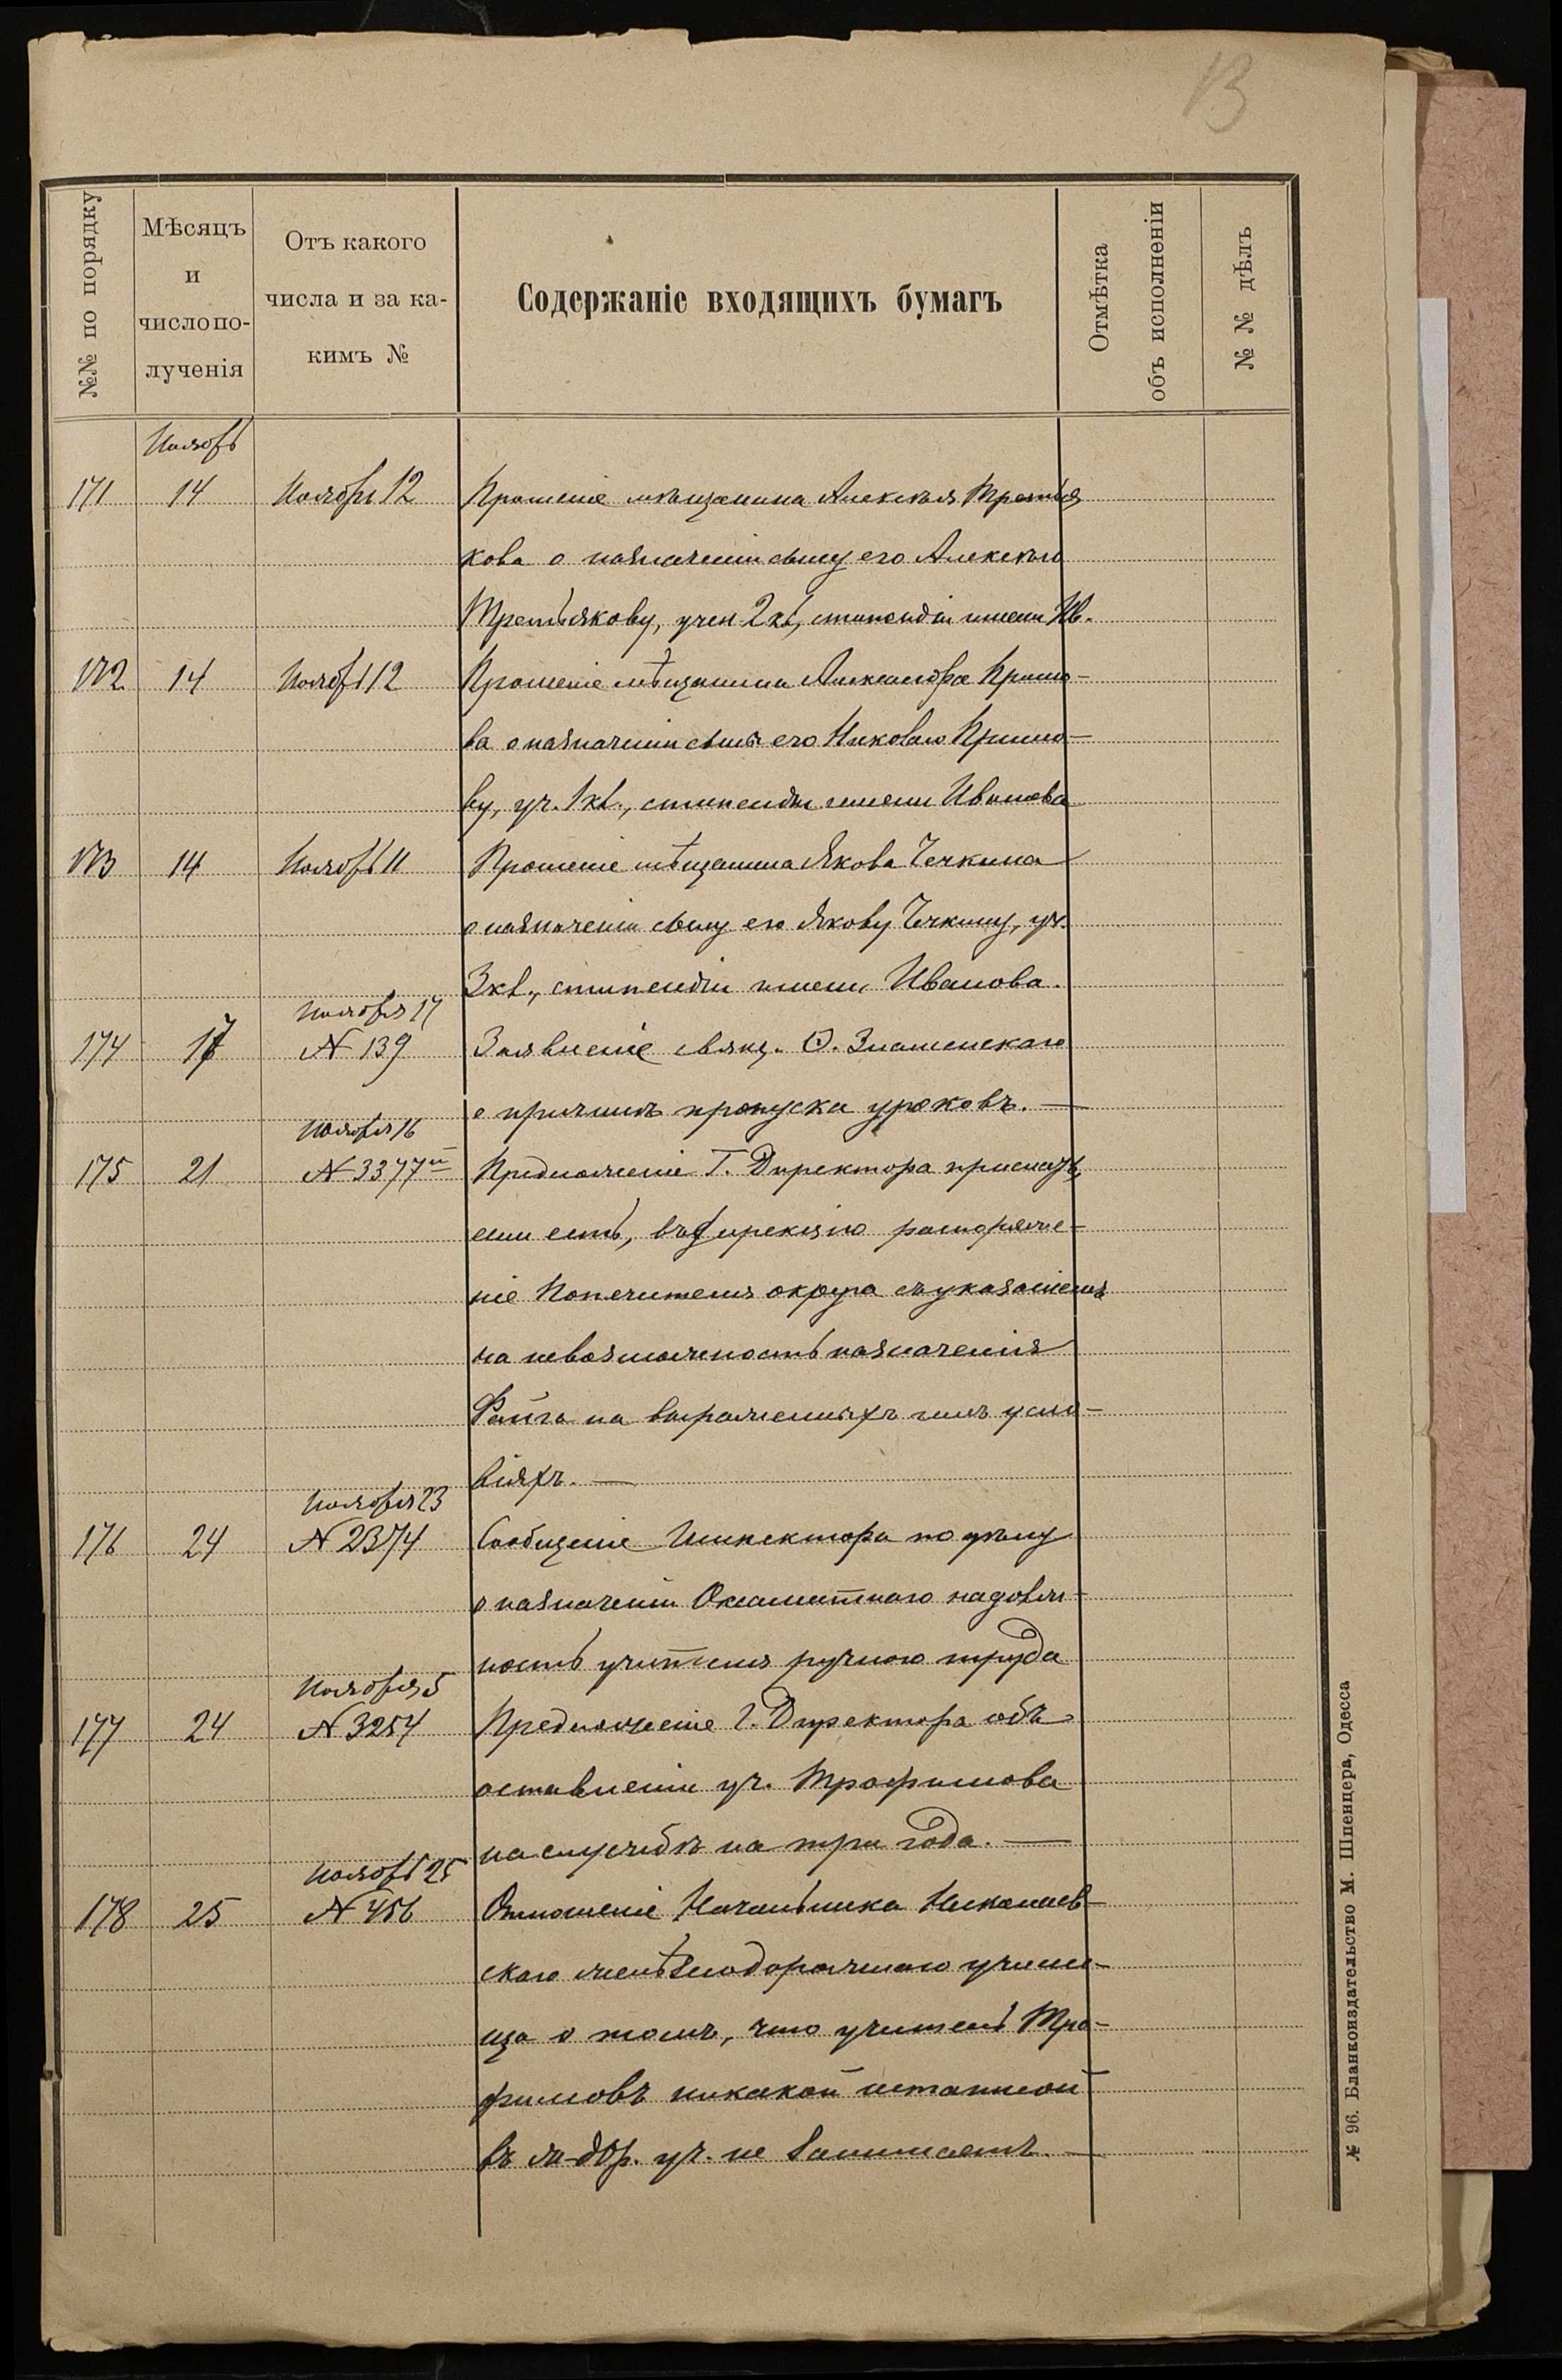 13
№№ по порядку
Мѣсяцъ
и
число по-
лученія
Отъ какого
числа и за ка-
кимъ №
Содержаніе входящихъ бумагъ
Отмѣтка
объ исполненіи
№ № дѣлъ
Ноябрь
171 14 Ноябрь 12 Прошеніе мѣщанина Алексѣя Третья
кова о назначеніи сыну его Алексѣю
Третьякову, учен 2 кл, стипендіи имени Ив.
172 14 Ноябрь 12 Прошеніе мѣщанина Александра
ва о назначеніи сыну его Николаю
ву, уч. 1 кл., стипендіи имени Иванова
173 14 Ноябрь 11 Прошеніе мѣщанина Якова Чечкина
о назначеніи сыну его Якову Чечкину, уч.
3 кл., стипендіи имени Иванова.
Ноября 17
174 17 № 139 Заявленіе свящ. Ѳ. Знаменскаго
о причинѣ пропуска уроковъ. —
Ноября 16
175 21 № 3377 Предложеніе Г. Директора прислать,
если есть, въ дирекцію распоряже-
ніе Попечителя округа съ указаніемъ
на невозможность назначенія
на выраженныхъ имъ усло-
віяхъ. —
Ноября 23
176 24 № 2374 Сообщеніе Инспектора по дѣлу
о назначеніи Оксамитнаго на долж-
ность учителя ручного труда
Ноября 5
177 24 № 3254 Предложеніе г. Директора объ
оставленіи уч. Трофимова
на службѣ на три года. —
Ноябрь 25
178 25 № 456 Отношеніе Начальника Николаев-
скаго желѣзнодорожнаго учили-
ща о томъ, что учитель Тро-
фимовъ никакой штатной
въ ж-дор. уч. не занимаетъ. —
№ 96. Бланкоиздательство М. Шпенцера, Одесса